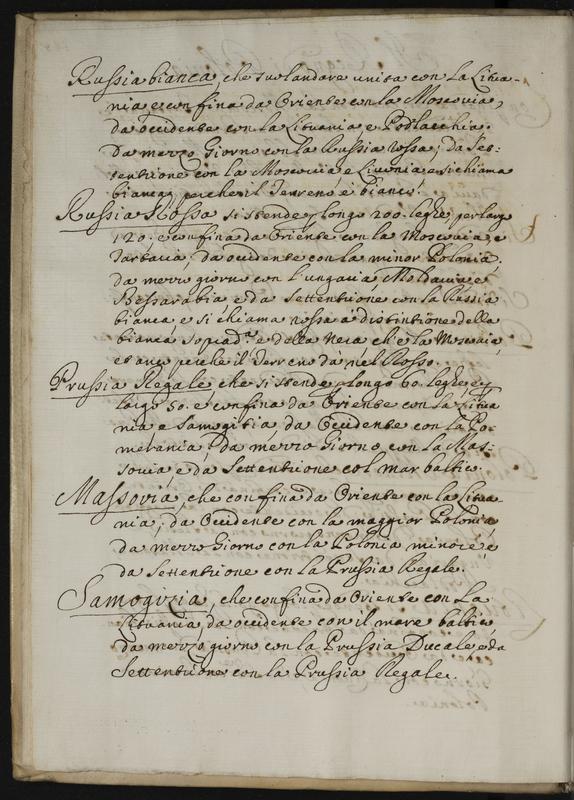 Russia bianca, che suol andare unita con la Litua-
nia e confina da Oriente con la Moscovia,
da occidente con la Lituania e Podlacchia.
da mezzo Giorno con la Russia rossa; da Set-
tentrione con la Moscovia e Livonia, e si chiama
bianca, perche il terreno è bianco.
Russia Rossa si stende p longo 200. leghe, per largo
120. e confina da Oriente con la Moscovia, e
Tartaria, da occidente con la minor Polonia.
da mezzo giorno con l'ungaria Moldavia e
Bessarabia e da Settentrione con la Russia
bianca, e si chiama rossa a distintione della
bianca sopradª. e della Nera ch'è la Moscovia,
et anco perche il terreno dà nel Rosso.
Prussia Regale, che si stende p longo 60. leghe, e p
largo 50. e confina da Oriente con la Litua
nia e Samogitia, da Occidente con la Po-
merania, da mezzo Giorno con la Mas-
sovia, e da Settentrione col mar baltico.
Massovia, che confina da Oriente con la Litua
nia, da Occidente con la maggior Polonia,
da mezzo Giorno con la Polonia minore e
da Settentrione con la Prussia Regale.
Samogizia, che confina da Oriente con La
Lituania, da occidente con il mare baltico
da mezzo giorno con la Prussia Ducale, e da
Settentrione con la Prussia Regale.